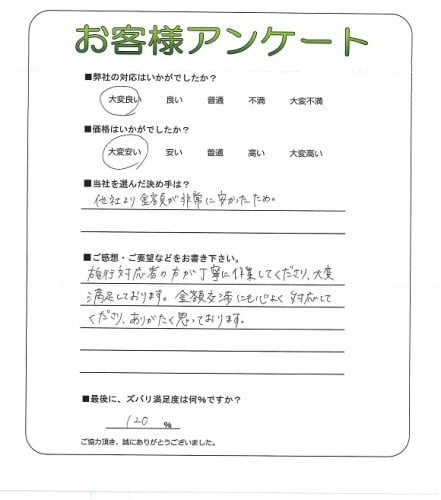 お客様アンケート
■弊社の対応はいかがでしたか?
大変良い 良い 普通 不満 大変不満
■価格はいかがでしたか?
大変安い 安い 普通 高い 大変高い
■当社を選んだ決め手は?
他社より金額が非常に安かったため。
■ご感想・ご要望などをお書き下さい。
施行対応者の方が丁寧に作業してくださり、大変
満足しております。金額交渉にも心よく対応して
くださり、ありがたく思っております。
■最後に、ズバリ満足度は何%ですか?
120 %
ご協力頂き、誠にありがとうございました。